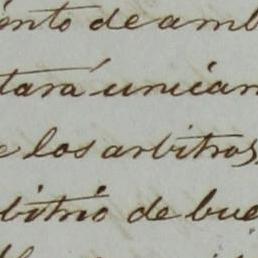 ento de amb
tará unicam
e los arbitros,
bitrio de bue